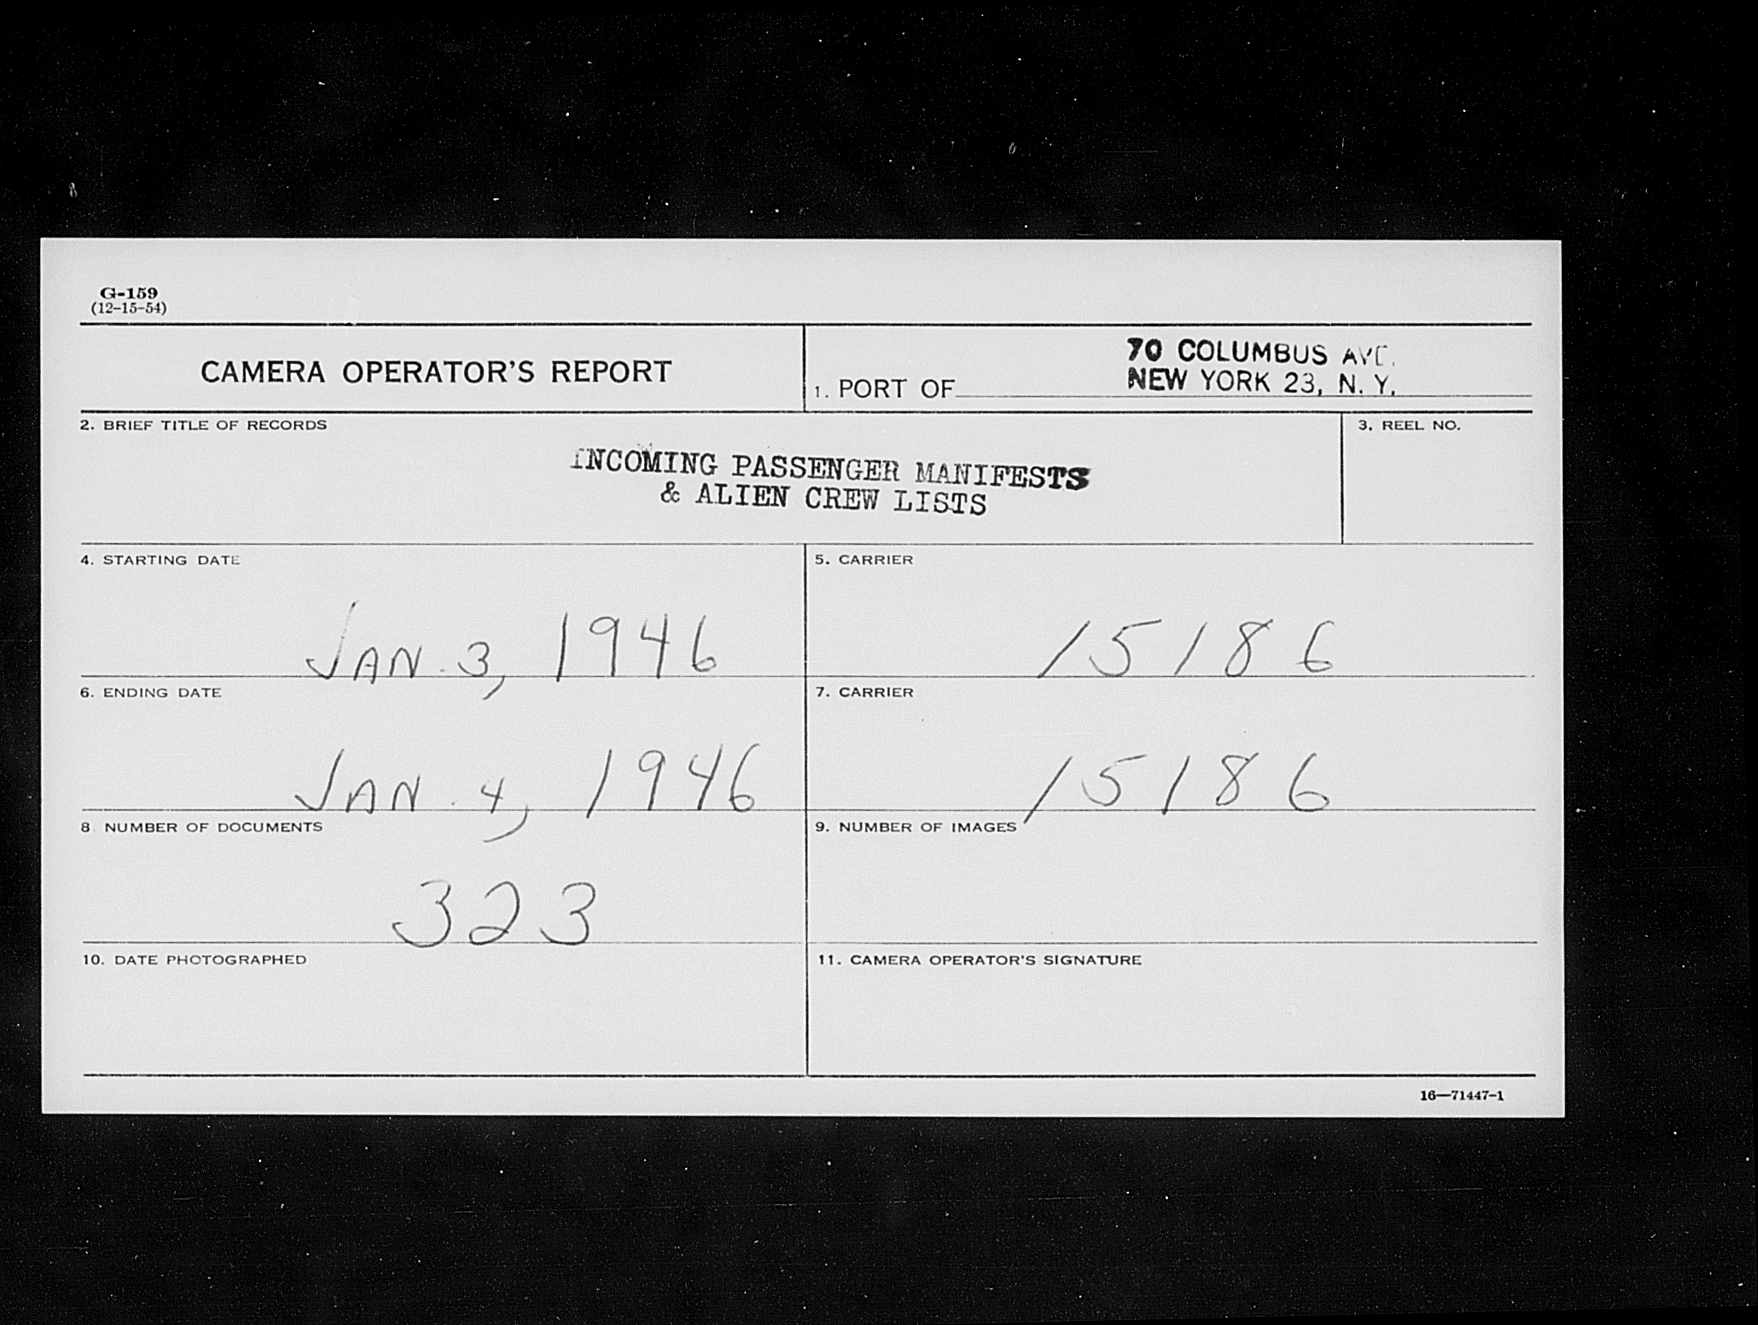 G-159
(12-15-54)
CAMERA OPERATOR'S REPORT
70 COLUMBUS AVE.
1. PORT OF NEW YORK 23, N. Y.
2. BRIEF TITLE OF RECORDS
3. REEL NO.
INCOMING PASSENGER MANIFESTS
& ALIEN CREW LISTS
4. STARTING DATE
5. CARRIER
JAN. 3, 1946
15186
6. ENDING DATE
7. CARRIER
JAN. 4, 1946
15186
8 NUMBER OF DOCUMENTS
9. NUMBER OF IMAGES
323
10. DATE PHOTOGRAPHED
11. CAMERA OPERATOR'S SIGNATURE
16—71447-1